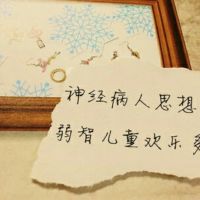 神经病人思想
弱智儿童欢乐多